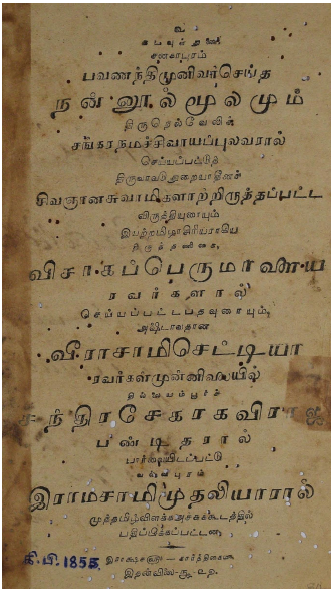 உ
சனகாபுரம்
பவணந்திமுனிவர்செய்த
நன்னூல்மூலமும்
திருநெல்வேலிச்
சங்கரநமச்சிவாயப்புலவரால்
செய்யப்பட்டுத்
திருவாவடுதுறையாதீனச்
சிவஞானசுவாமிகளாற்றிருத்தப்பட்ட
விருத்தியுரையும்
இயற்றமிழாசிரியராகிய
திருத்தணிகை,
விசாகப்பெருமாளைய
ரவர்களால்
செய்யப்பட்டபதவுரையும்,
அஷ்டாவதானம்
வீராசாமிசெட்டியா
ரவர்கள்முன்னிலையில்
சந்திரசேகரகவிராஜ
பண்டிதரால்
பார்வையிடப்பட்டு
இராமசாமிமுதலியாரால்
முத்தமிழ்விளக்கஅச்சுக்கூடத்தில்
பதிப்பிக்கப்பட்டன.
கி.பி.185
கார்த்திகை
இதன்விலை-ரூ-